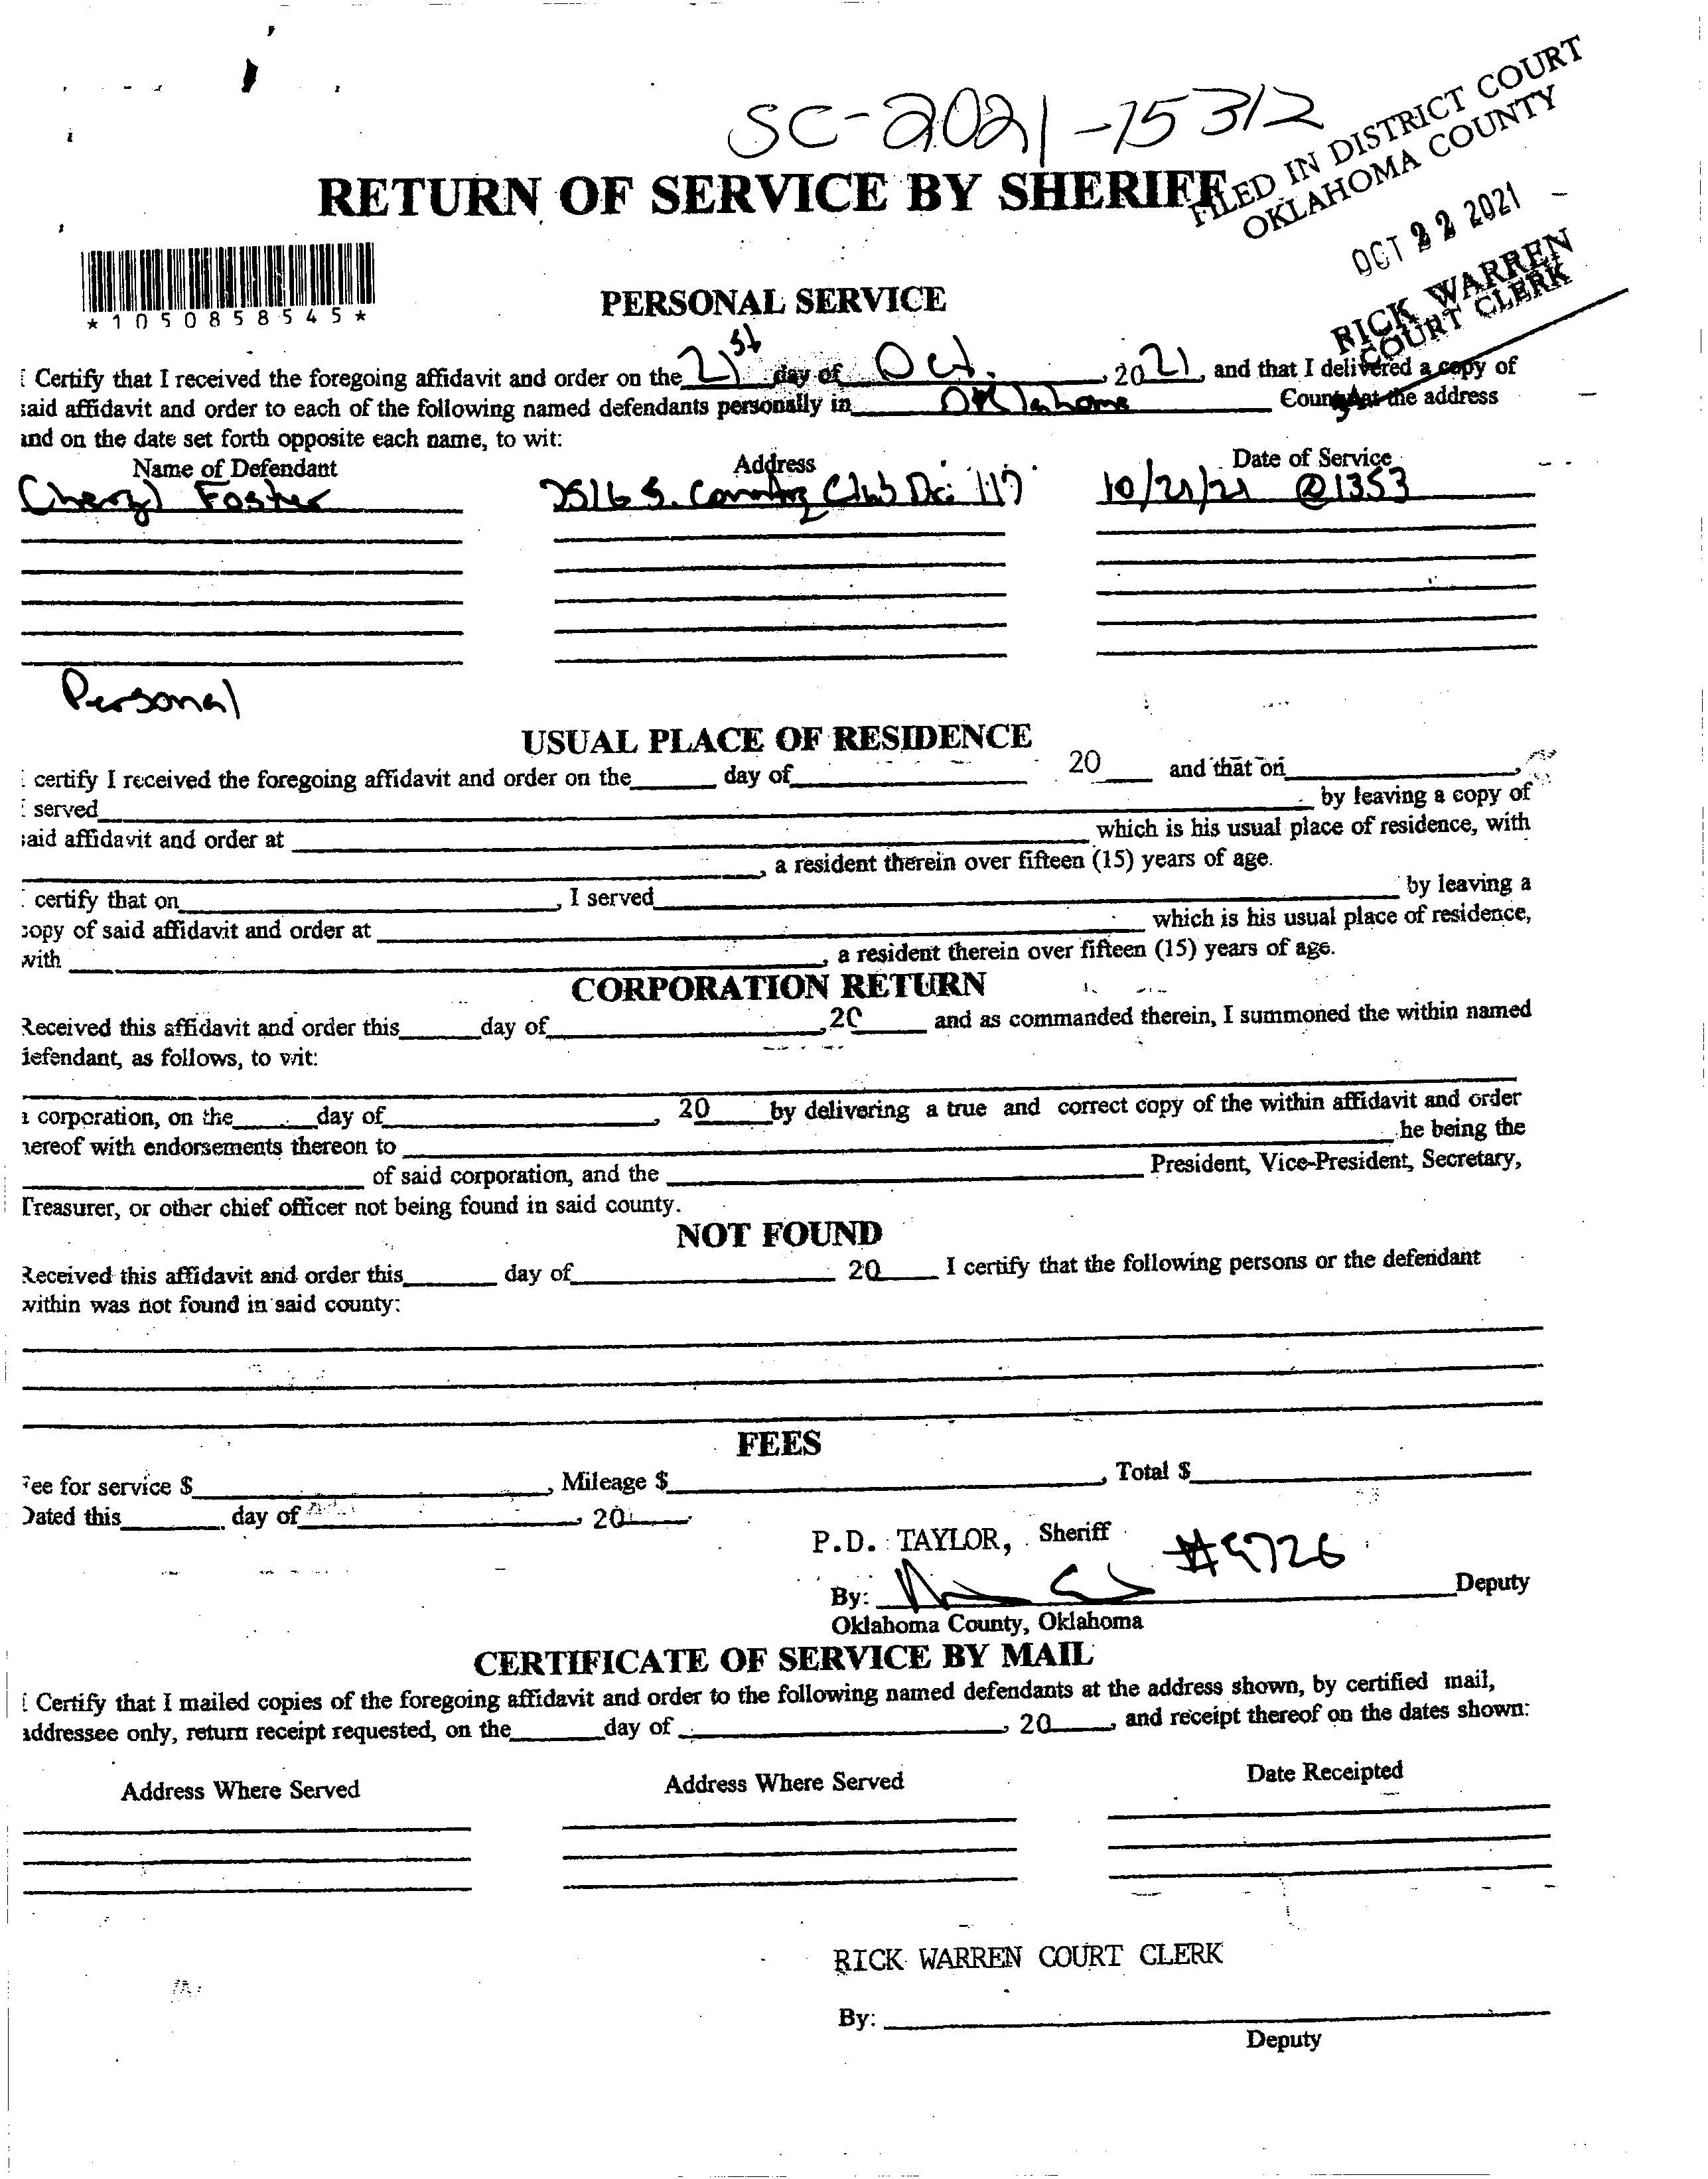 SC-2021-15312
RETURN OF SERVICE BY SHERIFF
FILED IN DISTRICT COURT
OKLAHOMA COUNTY
OCT 22 2021
RICK WARREN
COURT CLERK
*1050858545*
PERSONAL SERVICE
I Certify that I received the foregoing affidavit and order on the 21st day of Oct. , 2021, and that I delivered a copy of
said affidavit and order to each of the following named defendants personally in Oklahoma County at the address
and on the date set forth opposite each name, to wit:
Name of Defendant Address Date of Service
Cheryl Foster S. Country Club Dr. 117 10/21/21 @1353
Personal
USUAL PLACE OF RESIDENCE
I certify I received the foregoing affidavit and order on the ______ day of ______ 20____ and that on ______,
I served ______ by leaving a copy of
said affidavit and order at ______ which is his usual place of residence, with
______, a resident therein over fifteen (15) years of age.
I certify that on ______, I served ______ by leaving a
copy of said affidavit and order at ______ which is his usual place of residence,
with ______, a resident therein over fifteen (15) years of age.
CORPORATION RETURN
Received this affidavit and order this ______ day of ______, 20____ and as commanded therein, I summoned the within named
defendant, as follows, to wit:
a corporation, on the ______ day of ______, 20____ by delivering a true and correct copy of the within affidavit and order
hereof with endorsements thereon to ______ he being the
______ of said corporation, and the ______ President, Vice-President, Secretary,
Treasurer, or other chief officer not being found in said county.
NOT FOUND
Received this affidavit and order this ______ day of ______ 20____ I certify that the following persons or the defendant
within was not found in said county:
FEES
Fee for service $______, Mileage $______, Total $______
Dated this ______ day of ______, 20____
P.D. TAYLOR, Sheriff #9726
By: ______ Deputy
Oklahoma County, Oklahoma
CERTIFICATE OF SERVICE BY MAIL
I Certify that I mailed copies of the foregoing affidavit and order to the following named defendants at the address shown, by certified mail,
addressee only, return receipt requested, on the ______ day of ______, 20____, and receipt thereof on the dates shown:
Address Where Served Address Where Served Date Receipted
RICK WARREN COURT CLERK
By: ______
Deputy